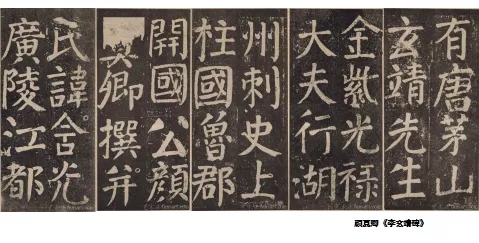 有唐茅山
玄靖先生
金紫光禄
大夫行湖
州刺史上
柱國魯郡
開國公顏
真卿撰并
氏諱含光
廣陵江都
颜真卿《李玄靖碑》